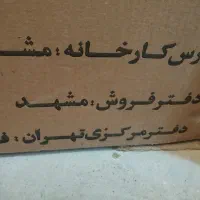 رس کارخانه : مشـ
دفتر فروش : مشهد
دفتر مرکزی تهران :